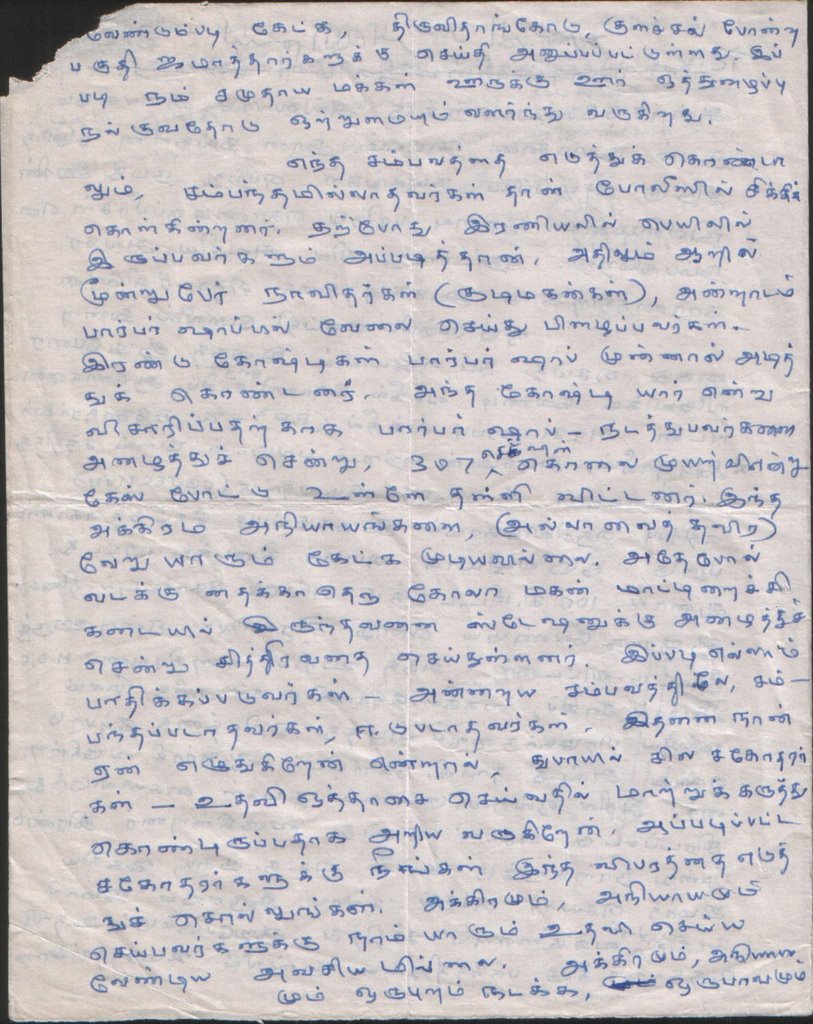 வேண்டும்படி கேட்க, திருவிதாங்கோடு, குளச்சல் போன்ற
பகுதி ஜமாத்தார்களுக்கு செய்தி அனுப்பப்பட்டுள்ளது. இப்
படி நம் சமுதாய மக்கள் ஊருக்கு ஊர் ஒத்துழைப்பு
நல்குவதோடு ஒற்றுமையும் வளர்ந்து வருகிறது.
எந்த சம்பவத்தை எடுத்துக் கொண்டா
லும், சம்பந்தமில்லாதவர்கள் தான் போலீஸில் சிக்கிக்
கொள்கின்றனர். தற்போது இரணியலில் ஜெயிலில்
இருப்பவர்களும் அப்படித்தான். அதிலும் ஆறில்
மூன்றுபேர் நாவிதர்கள் (குடிமகன்கள்), அன்றாடம்
பார்பர் ஷாப்பில் வேலை செய்து பிழைப்பவர்கள்.
இரண்டு கோஷ்டிகள் பார்பர் ஷாப் முன்னால் அடித்
துக் கொண்டனர். அந்த கோஷ்டி யார் என்று
விசாரிப்பதற்காக பார்பர் ஷாப் - நடத்துபவர்களை
அழைத்துச் சென்று, 307 செக்ஷன் கொலை முயற்சி என்று
கேஸ் போட்டு உள்ளே தள்ளி விட்டனர். இந்த
அக்கிரம அநியாயங்களை, (அல்லாவைத் தவிர)
வேறு யாரும் கேட்க முடியவில்லை. அதேபோல்
வடக்கு தைக்கா தெரு கோலா மகன் மாட்டிறைச்சி
கடையில் இருந்தவனை ஸ்டேஷனுக்கு அழைத்துச்
சென்று சித்திரவதை செய்துள்ளனர். இப்படி எல்லாம்
பாதிக்கப்படுவர்கள் - அன்றைய சம்பவத்திலே, சம்-
பந்தப்படாதவர்கள், ஈடுபடாதவர்கள். இதனை நான்
ஏன் எழுதுகிறேன் என்றால், துபாயில் சில சகோதரர்
கள் - உதவி ஒத்தாசை செய்வதில் மாற்றுக்கருத்து
கொண்டிருப்பதாக அறிய வருகிறேன். அப்படிப்பட்ட
சகோதரர்களுக்கு நீங்கள் இந்த விபரத்தை எடுத்
துச் சொல்லுங்கள். அக்கிரமும், அநியாயமும்
செய்பவர்களுக்கு நாம் யாரும் உதவி செய்ய
வேண்டிய அவசியமில்லை. அக்கிரமும், அநியாய
மும் ஒருபுறம் நடக்க, ஒருபாவமும்